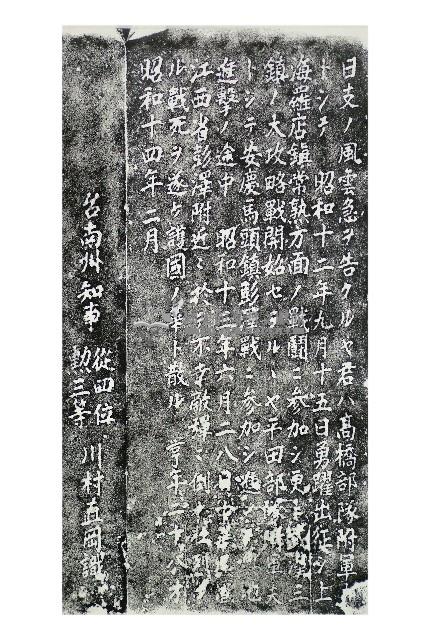 日支ノ風雲急ヲ告クルヤ君ハ高橋部隊附軍
トシテ 昭和十二年九月十五日勇躍出征シ上
海羅店鎮常熟方面ノ戰鬪ニ参加シ更
鎮ノ大攻略戰開始セラルヽヤ平田部隊
トシテ安慶馬頭鎮彭澤戰ニ参加シ進
進擊ノ途中 昭和十三年六月二八日
江西省彭澤附近ニ於テ不幸敵彈ニ倒
ル戰死ヲ遂ケ護國ノ華ト散ル 享年二十八才
昭和十四年二月
台南州知事 從四位 勳三等 川村直岡識